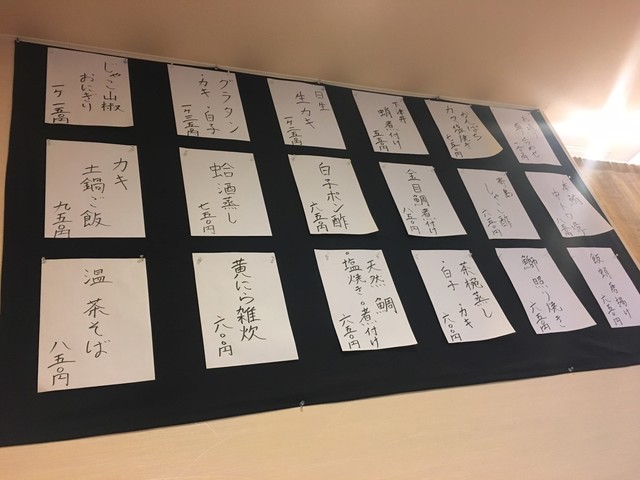 カマ塩焼き
七五〇円
下津井
蛸煮付け
五五〇円
日生
生カキ
一ケ二五〇円
グラタン
・カキ・白子
一ケ三五〇円
じゃこ山椒
おにぎり
一ケ一五〇円
六五〇円
金目鯛煮付け
八五〇円
白子ポン酢
六五〇円
蛤酒蒸し
七五〇円
カキ
土鍋ご飯
九五〇円
飯蛸唐揚げ
六五〇円
鰤照り焼き
六五〇円
茶椀蒸し
・白子・カキ
六〇〇円
天然 鯛
・塩焼き・煮付け
六五〇円
黄にら雑炊
六〇〇円
温 茶そば
八五〇円